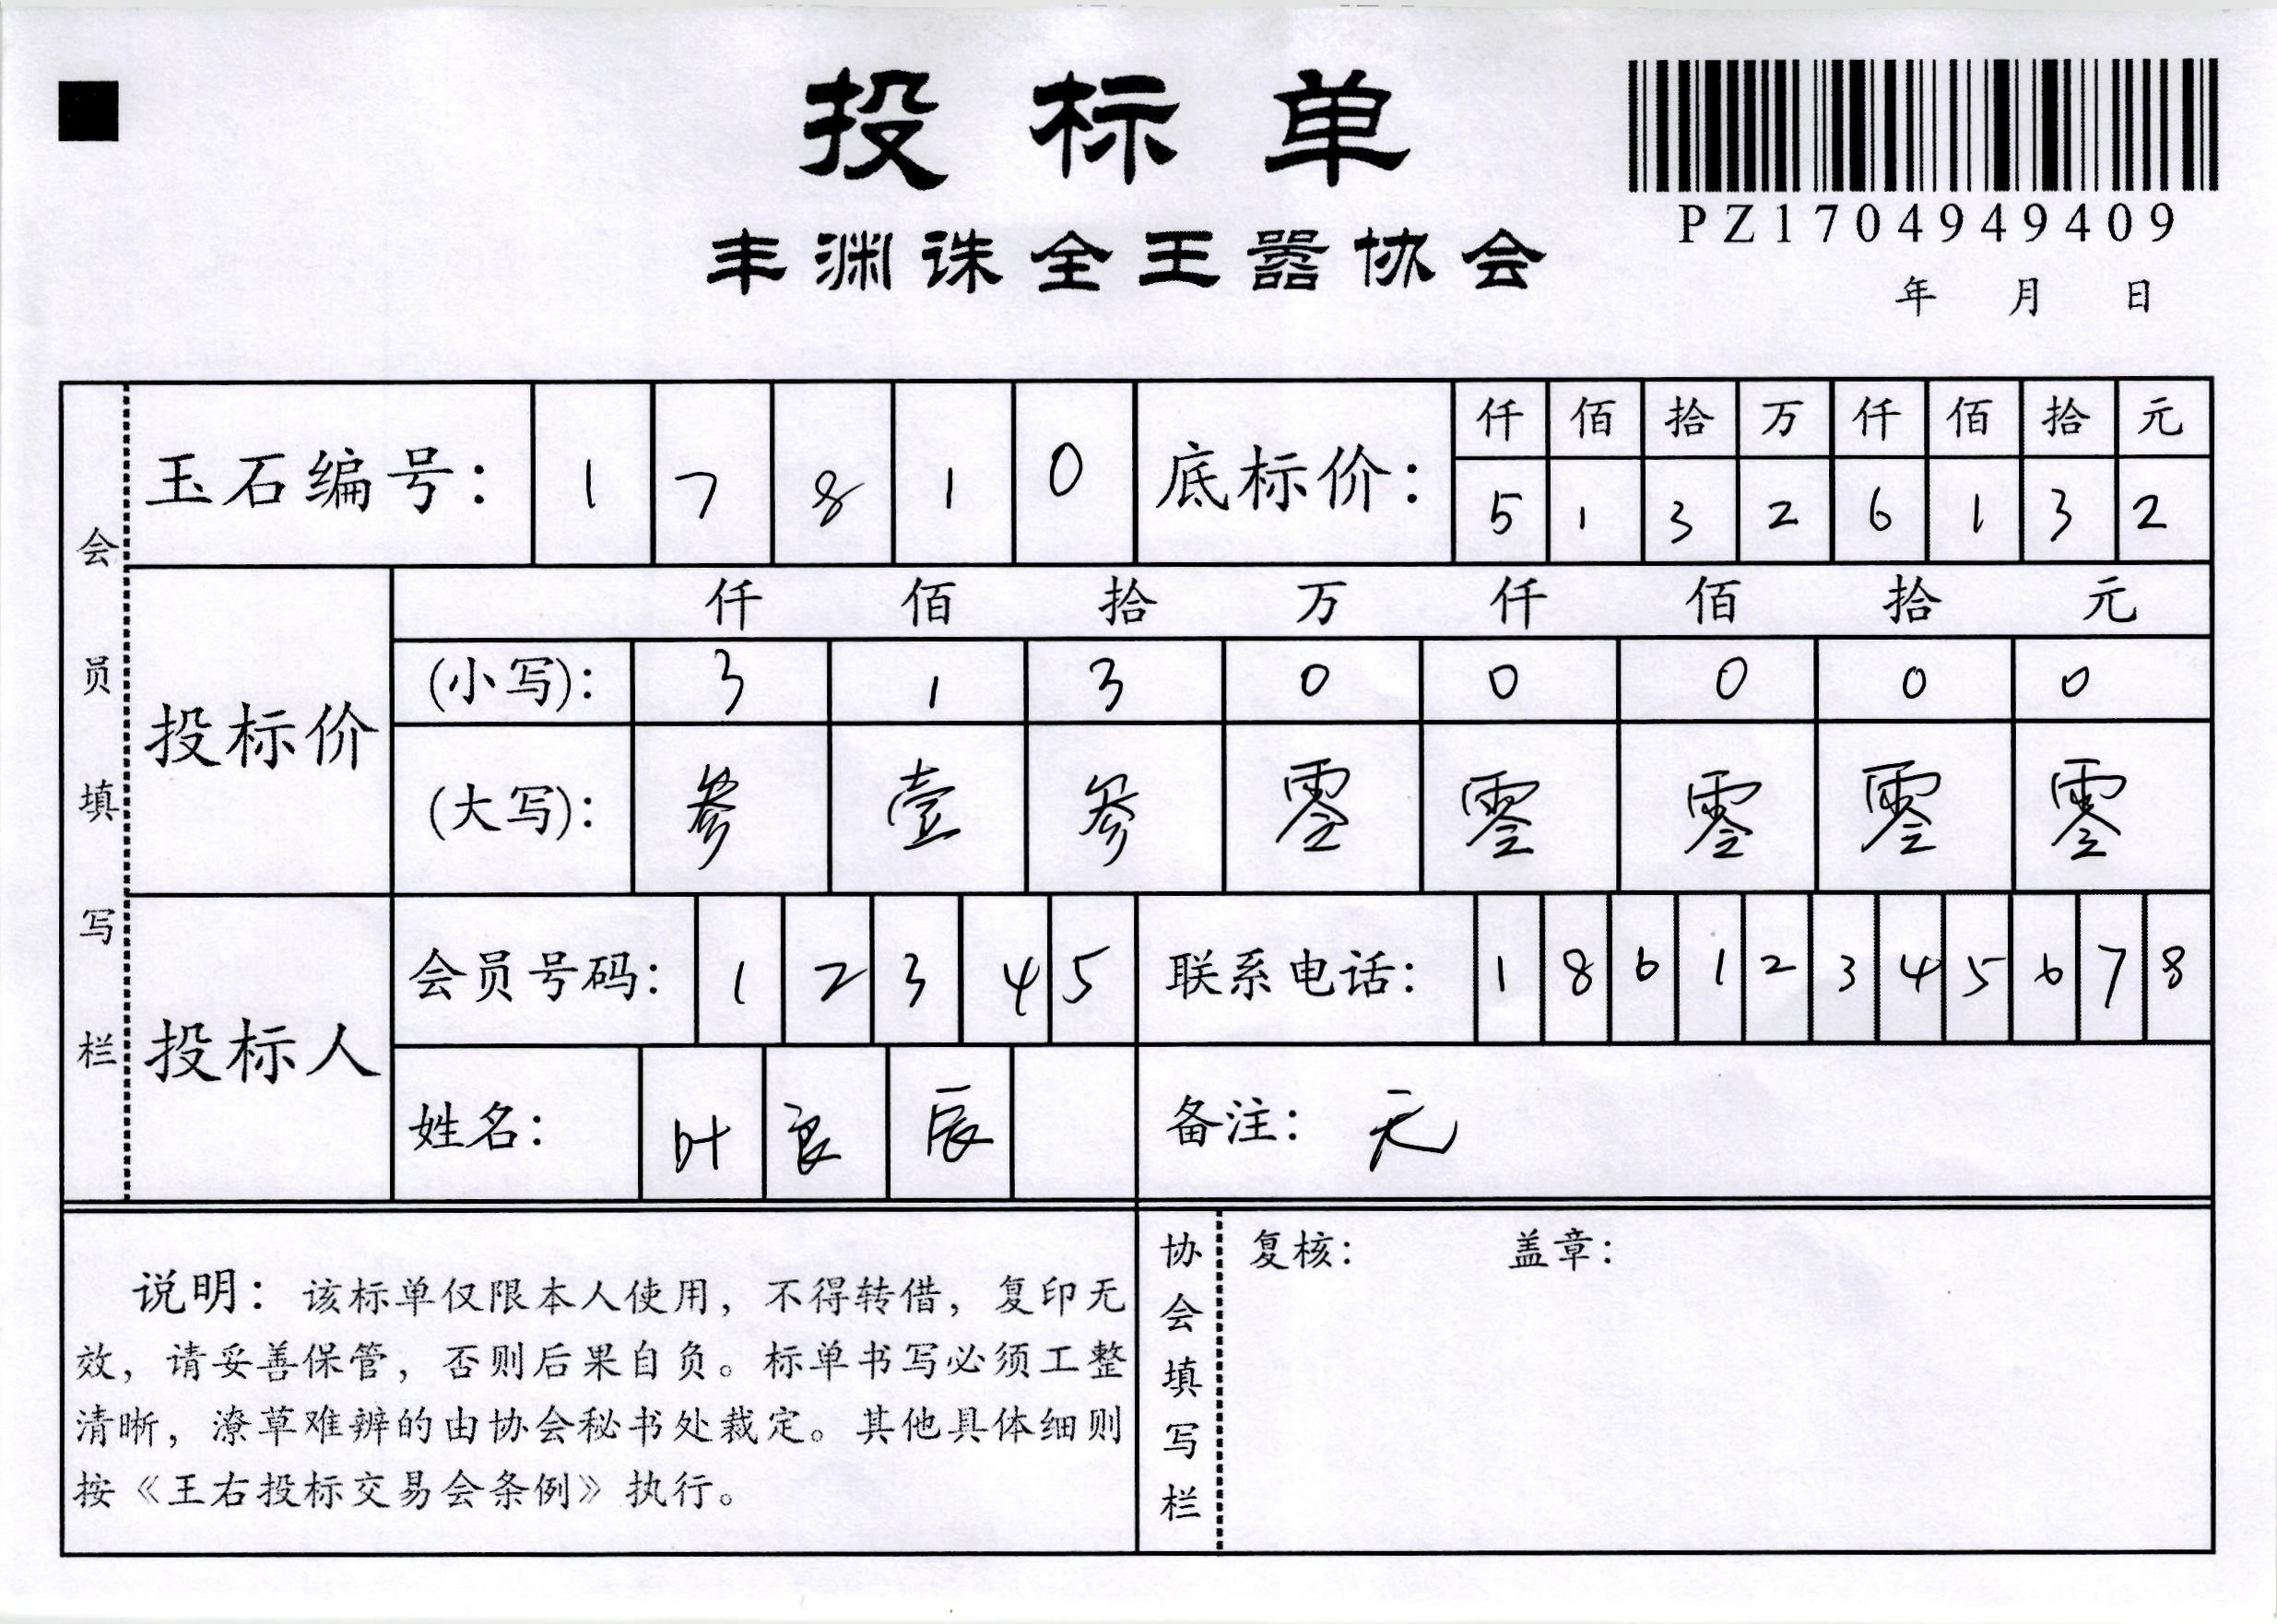 投标单
PZ1704949409
丰渊诛全王嚣协会
年 月 日
会员填写栏
玉石编号: 1 7 8 1 0
底标价: 仟 佰 拾 万 仟 佰 拾 元
5 1 3 2 6 1 3 2
投标价
仟 佰 拾 万 仟 佰 拾 元
(小写): 3 1 3 0 0 0 0 0
(大写): 叁 壹 叁 零 零 零 零 零
投标人
会员号码: 1 2 3 4 5
联系电话: 1 8 6 1 2 3 4 5 6 7 8
姓名: 叶 良 辰
备注: 无
说明:该标单仅限本人使用,不得转借,复印无
效,请妥善保管,否则后果自负。标单书写必须工整
清晰,潦草难辨的由协会秘书处裁定。其他具体细则
按《王右投标交易会条例》执行。
协会填写栏
复核: 盖章: